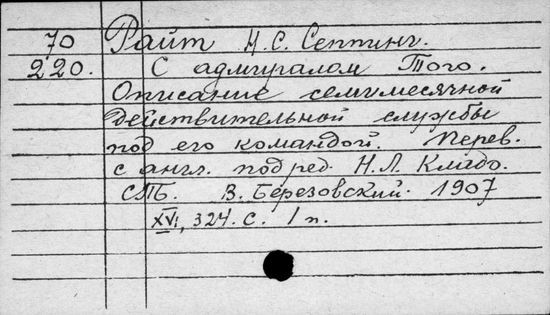 70 Райт Н.С. Сеппинг.
220. С адмиралом Того.
Описание семимесячной
действительной службы
под его командой. Перев.
с англ. под ред. Н.Л. Кладо.
СПБ. В. Березовский. 1907
XVI, 324. с. 1 п.